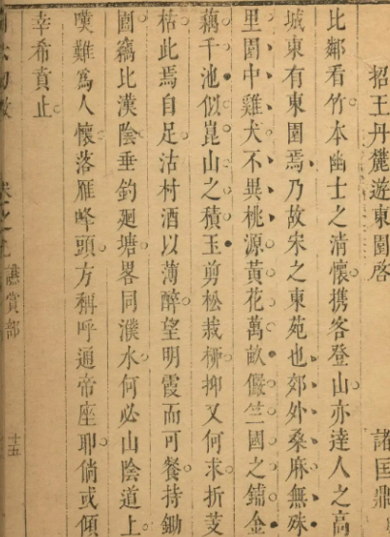 招王丹麓遊東園啓 諸匡鼎
比鄰看竹本幽士之清懷携客登山亦達人之高
城東有東園焉乃故宋之東苑也郊外桑麻無殊
里園中雞犬不異桃源黃花萬畝儼竺國之鋪金
藕千池似崑山之積玉剪松栽栁抑又何求折芰
枯此焉自足沽村酒以薄醉望明霞而可餐持鋤
園窩比漢陰垂釣廻塘畧同濮水何必山陰道上
嘆難爲人懷落雁峰頭方稱呼通帝座耶倘或傾
幸希賁止
卷之九 讌賞部 十五